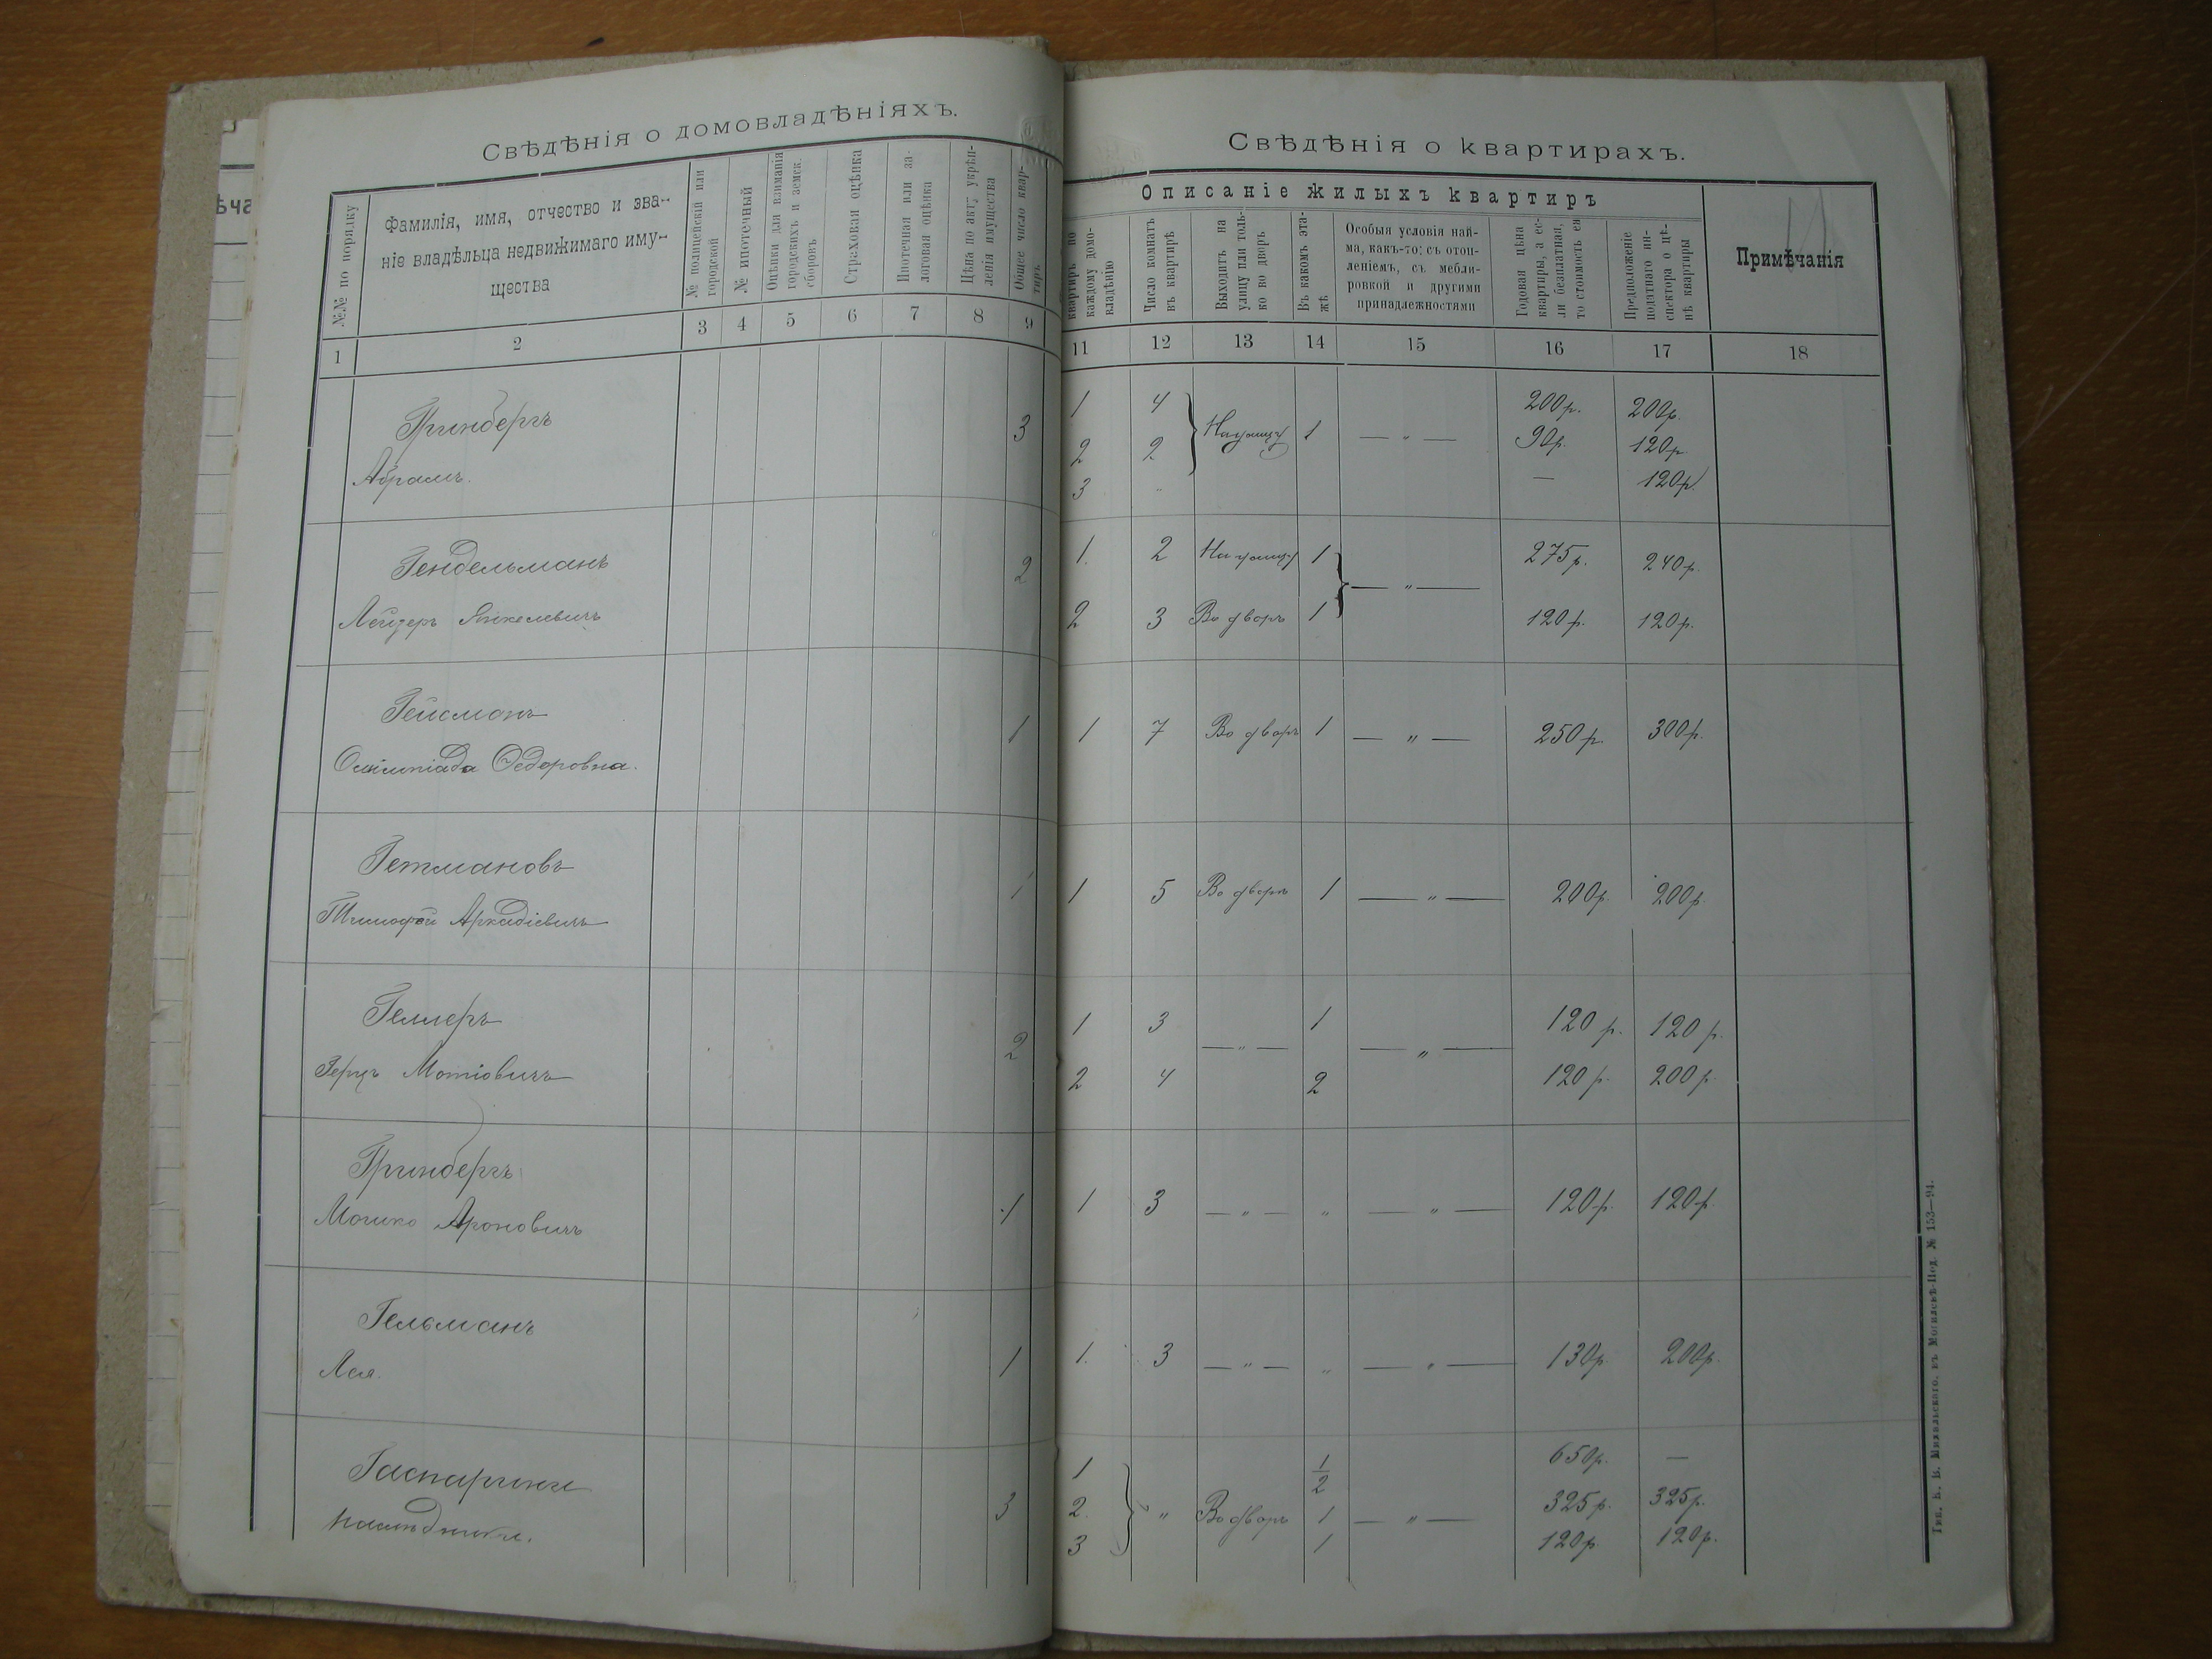 Свѣдѣнія о домовладѣніяхъ.
№№ по порядку
Фамилія, имя, отчество и зва-
ніе владѣльца недвижимаго иму-
щества
№ полицейскій или
городской
№ ипотечный
Оцѣнки для взиманія
городскихъ и земск.
сборовъ
Страховая оцѣнка
Ипотечная или за-
логовая оцѣнка
Цѣна по акту укрѣп-
ленія имущества
Общее число квар-
тиръ
1 2 3 4 5 6 7 8 9
Гринбергъ
Абрамъ.
3
Гендельманъ
Лейзеръ Янкелевичъ
2
Гейсманъ
Олімпіада Ѳедоровна.
1
Гетмановъ
Тимофѣй Аркадіевичъ
1
Геллеръ
Герцъ Мотіовичъ
2
Гринбергъ
Мошко Ароновичъ
1
Гельманъ
Лея.
1
Гаспарини
наслѣдники.
3
ѣча
Свѣдѣнія о квартирахъ.
Описаніе жилыхъ квартиръ
квартиръ по
каждому домо-
владѣнію
Число комнатъ
въ квартирѣ
Выходитъ на
улицу или толь-
ко во дворъ
Въ какомъ эта-
жѣ
Особыя условія най-
ма, какъ-то: съ отоп-
леніемъ, съ мебли-
ровкой и другими
принадлежностями
Годовая цѣна
квартиры, а ес-
ли безплатная,
то стоимость ея
Предположеніе
податнаго ин-
спектора о цѣ-
нѣ квартиры
Примѣчанія
11 12 13 14 15 16 17 18
1 4 На улицу 1 — „ — 200р. 200р.
2 2 90р. 120р
3 — 120р
1. 2 На улицу 1 — „ — 275р. 240р.
2 3 Во дворъ 1 120р. 120р.
1 7 Во дворъ 1 — „ — 250р. 300р.
1 5 Во дворъ 1 — „ — 200р. 200р.
1 3 — „ — 1 — „ — 120 р. 120 р.
2 4 2 120 р. 200 р.
1 3 — „ — „ — „ — 120р. 120р.
1. 3 — „ — „ — „ — 130р. 200р.
1 1/2 650р. —
2. „ Во дворъ 1 — „ — 325р. 325р.
3 1 120р 120р.
въ Могилевѣ-Под. № 153—94.